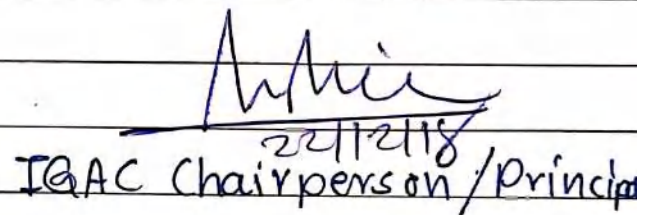 22/12/18
IQAC Chairperson/Princip